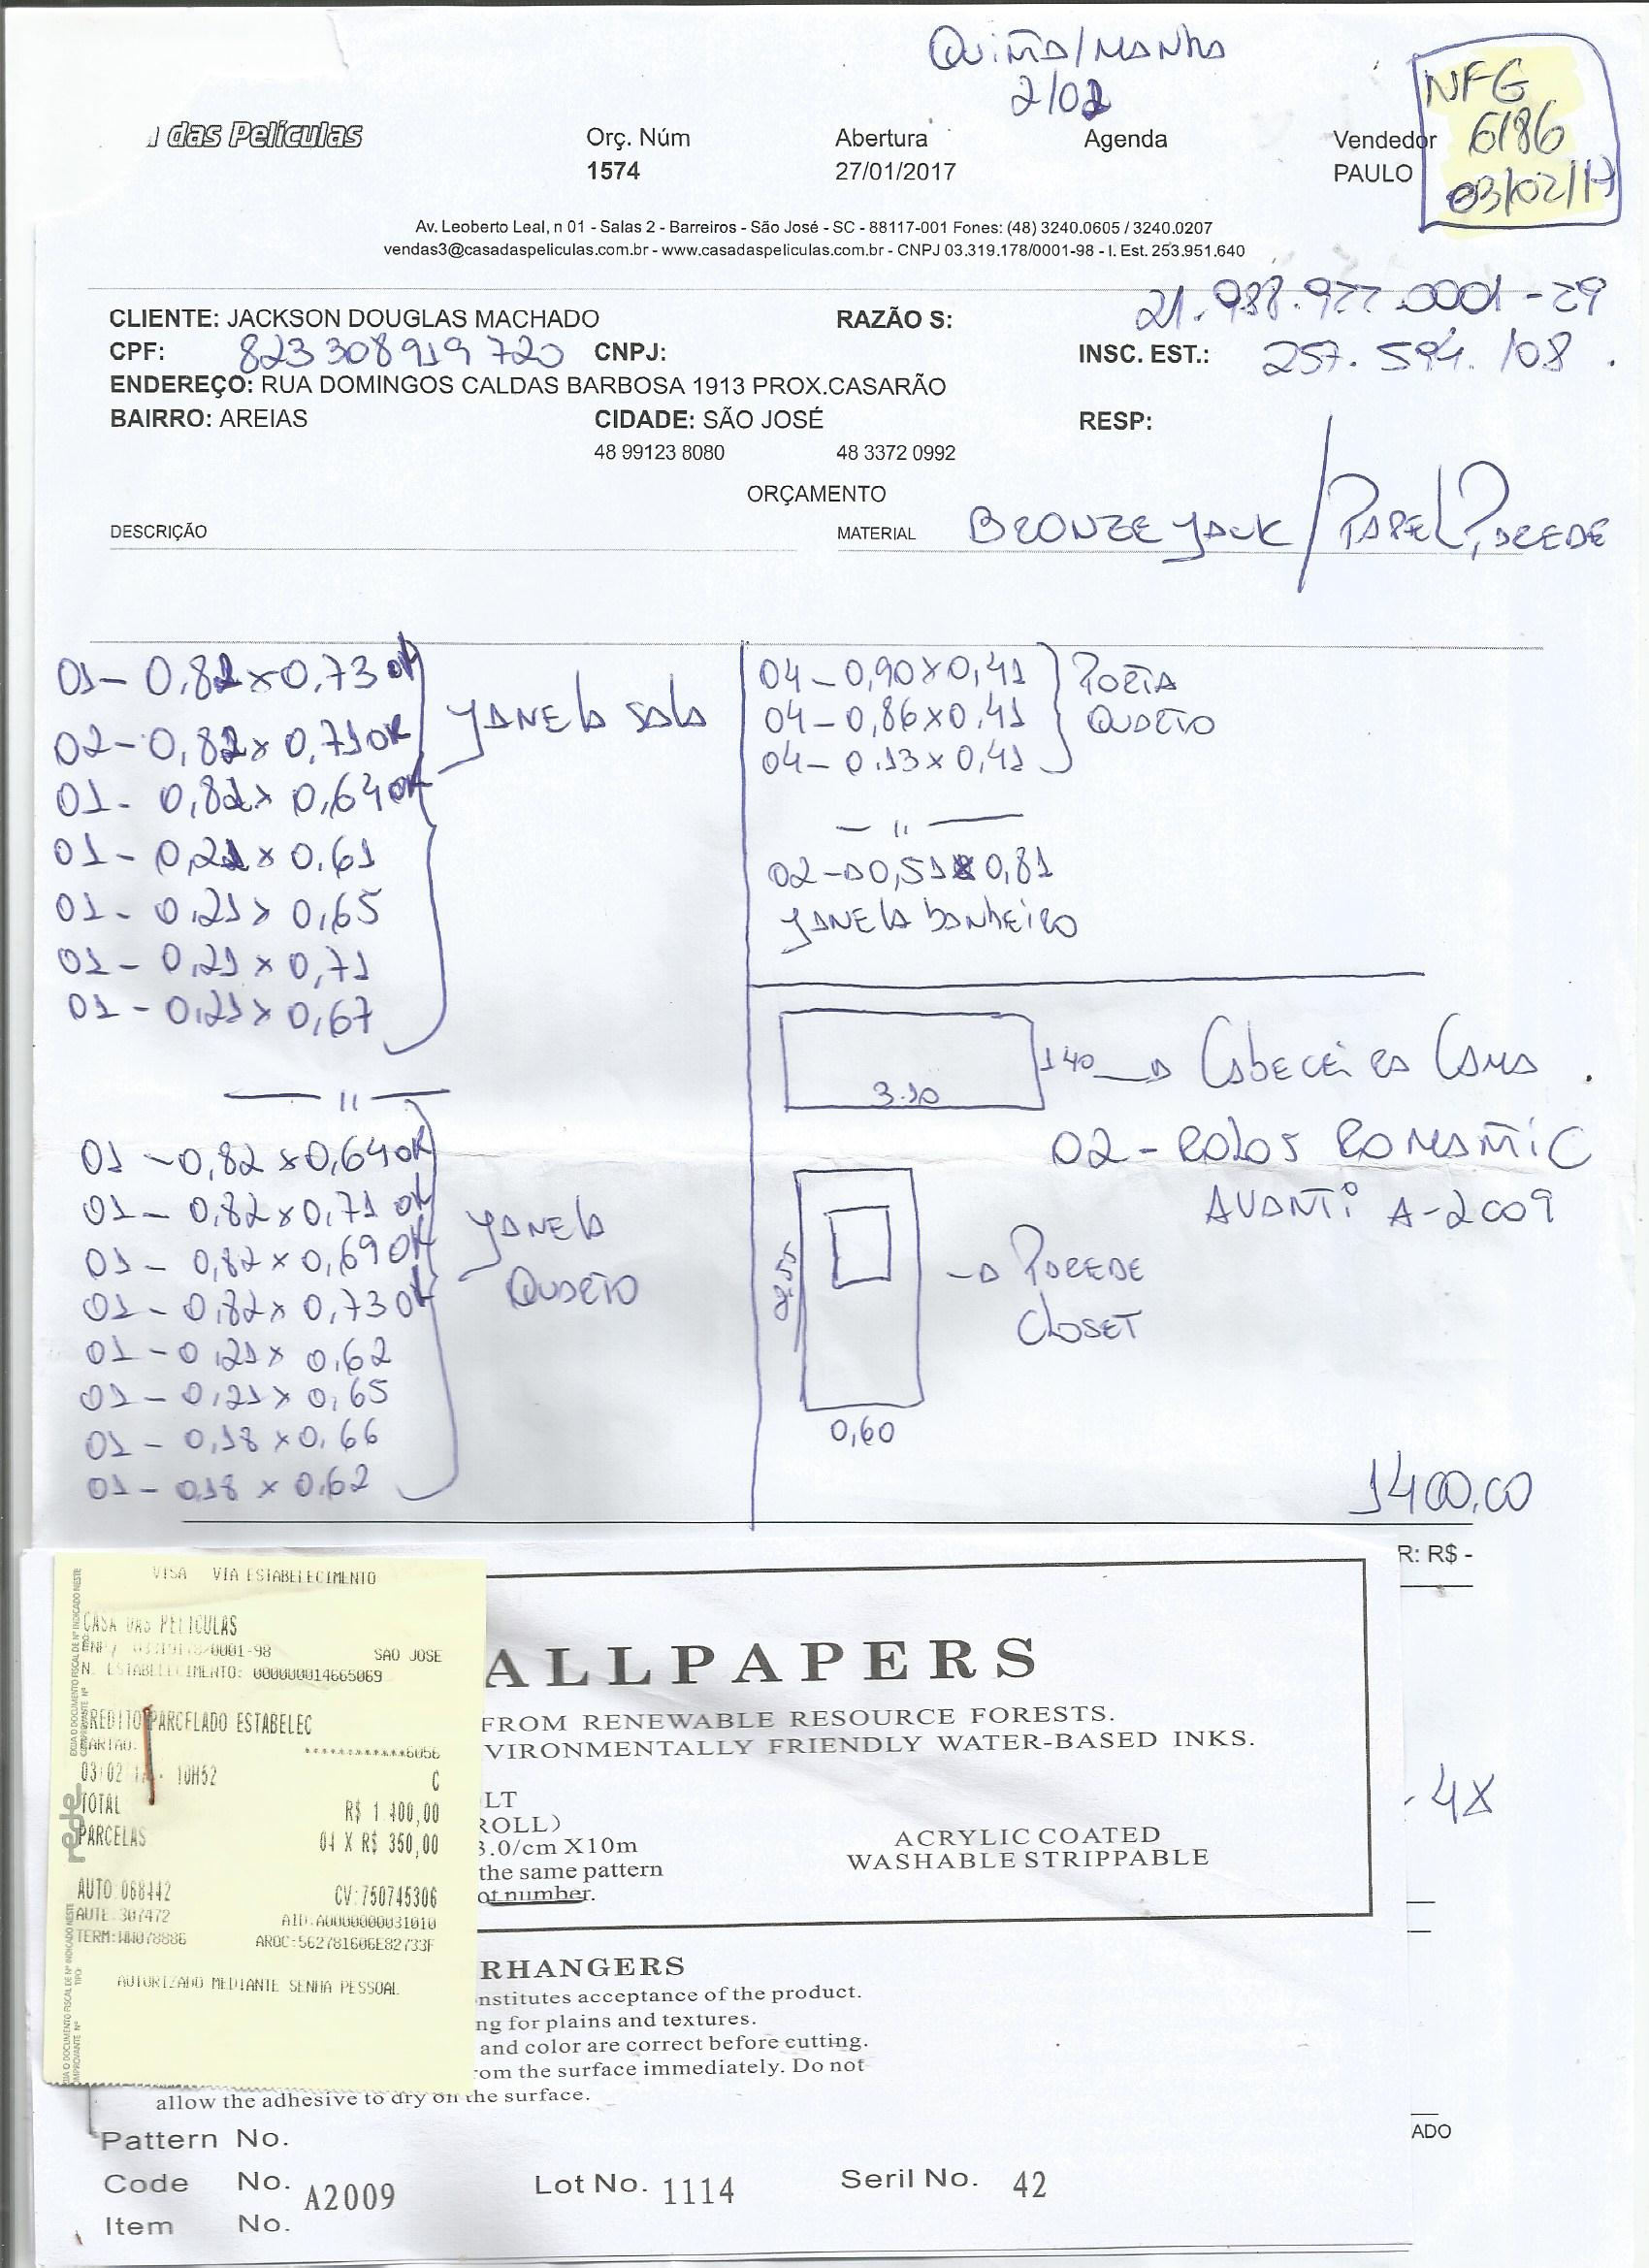 Quinta/manhã
2/02
NFG
6186
03/02/17
das Películas
Orç. Núm
1574
Abertura
27/01/2017
Agenda
Vendedor
PAULO
Av. Leoberto Leal, n 01 - Salas 2 - Barreiros - São José - SC - 88117-001 Fones: (48) 3240.0605 / 3240.0207
vendas3@casadaspeliculas.com.br - www.casadaspeliculas.com.br - CNPJ 03.319.178/0001-98 - I. Est. 253.951.640
21.988.977.0001-79
CLIENTE: JACKSON DOUGLAS MACHADO
RAZÃO S:
CPF: 823308919720 CNPJ:
INSC. EST.: 257.594.108.
ENDEREÇO: RUA DOMINGOS CALDAS BARBOSA 1913 PROX.CASARÃO
BAIRRO: AREIAS
CIDADE: SÃO JOSÉ
RESP:
48 99123 8080
48 3372 0992
ORÇAMENTO
DESCRIÇÃO
MATERIAL
BRONZE / PAPEL PAREDE
01 - 0,82 x 0,73 OK
02 - 0,82 x 0,71 OK
01 - 0,82 x 0,64 OK
01 - 0,21 x 0,61
01 - 0,21 x 0,65
01 - 0,21 x 0,71
01 - 0,21 x 0,67
JANELA SALA
— 11 —
01 - 0,82 x 0,64 OK
01 - 0,82 x 0,71 OK
01 - 0,82 x 0,69 OK
01 - 0,82 x 0,73 OK
01 - 0,21 x 0,62
01 - 0,21 x 0,65
01 - 0,18 x 0,66
01 - 0,18 x 0,62
JANELA
QUARTO
04 - 0,90 x 0,41
04 - 0,86 x 0,41
04 - 0.13 x 0,41
PORTA
QUARTO
— 11 —
02 - 0,51 x 0,81
JANELA banheiro
3.10
1 40 → Cabeceira Cama
02 - ROLOS ROMANTIC
AVANTI A-2009
0,60
→ PAREDE
CLOSET
1400,00
R: R$ -
VISA VIA ESTABELECIMENTO
CASA DAS PELICULAS
SAO JOSE
N. ESTABELECIMENTO: 000000014665069
CREDITO PARCELADO ESTABELEC
CARTAO: ************6056
03/02 - 10H52
C
TOTAL R$ 1 400,00
PARCELAS 04 X R$ 350,00
AUTO:068442 CV:750745306
AUTE:307472 AID:A0000000031010
TERM:WW078886 AROC:562781606E82733F
AUTORIZADO MEDIANTE SENHA PESSOAL
rede
ALLPAPERS
FROM RENEWABLE RESOURCE FORESTS.
VIRONMENTALLY FRIENDLY WATER-BASED INKS.
LT
ROLL)
3.0/cm X10m
the same pattern
ot number.
ACRYLIC COATED
WASHABLE STRIPPABLE
- 4X
RHANGERS
nstitutes acceptance of the product.
ng for plains and textures.
and color are correct before cutting.
rom the surface immediately. Do not
allow the adhesive to dry on the surface.
ADO
Pattern No.
Code No. A2009 Lot No. 1114 Seril No. 42
Item No.